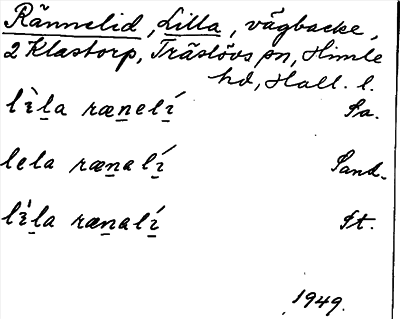 Rännelid, Lilla, vägbacke,
2 Klastorp, Träslövs sn, Himle
hd, Hall. l.
lì̱la ræṉelí̱ Sa.
lela ræṉalí̱ Sand.
lì̱la ræṉalí̱ St.
1949.